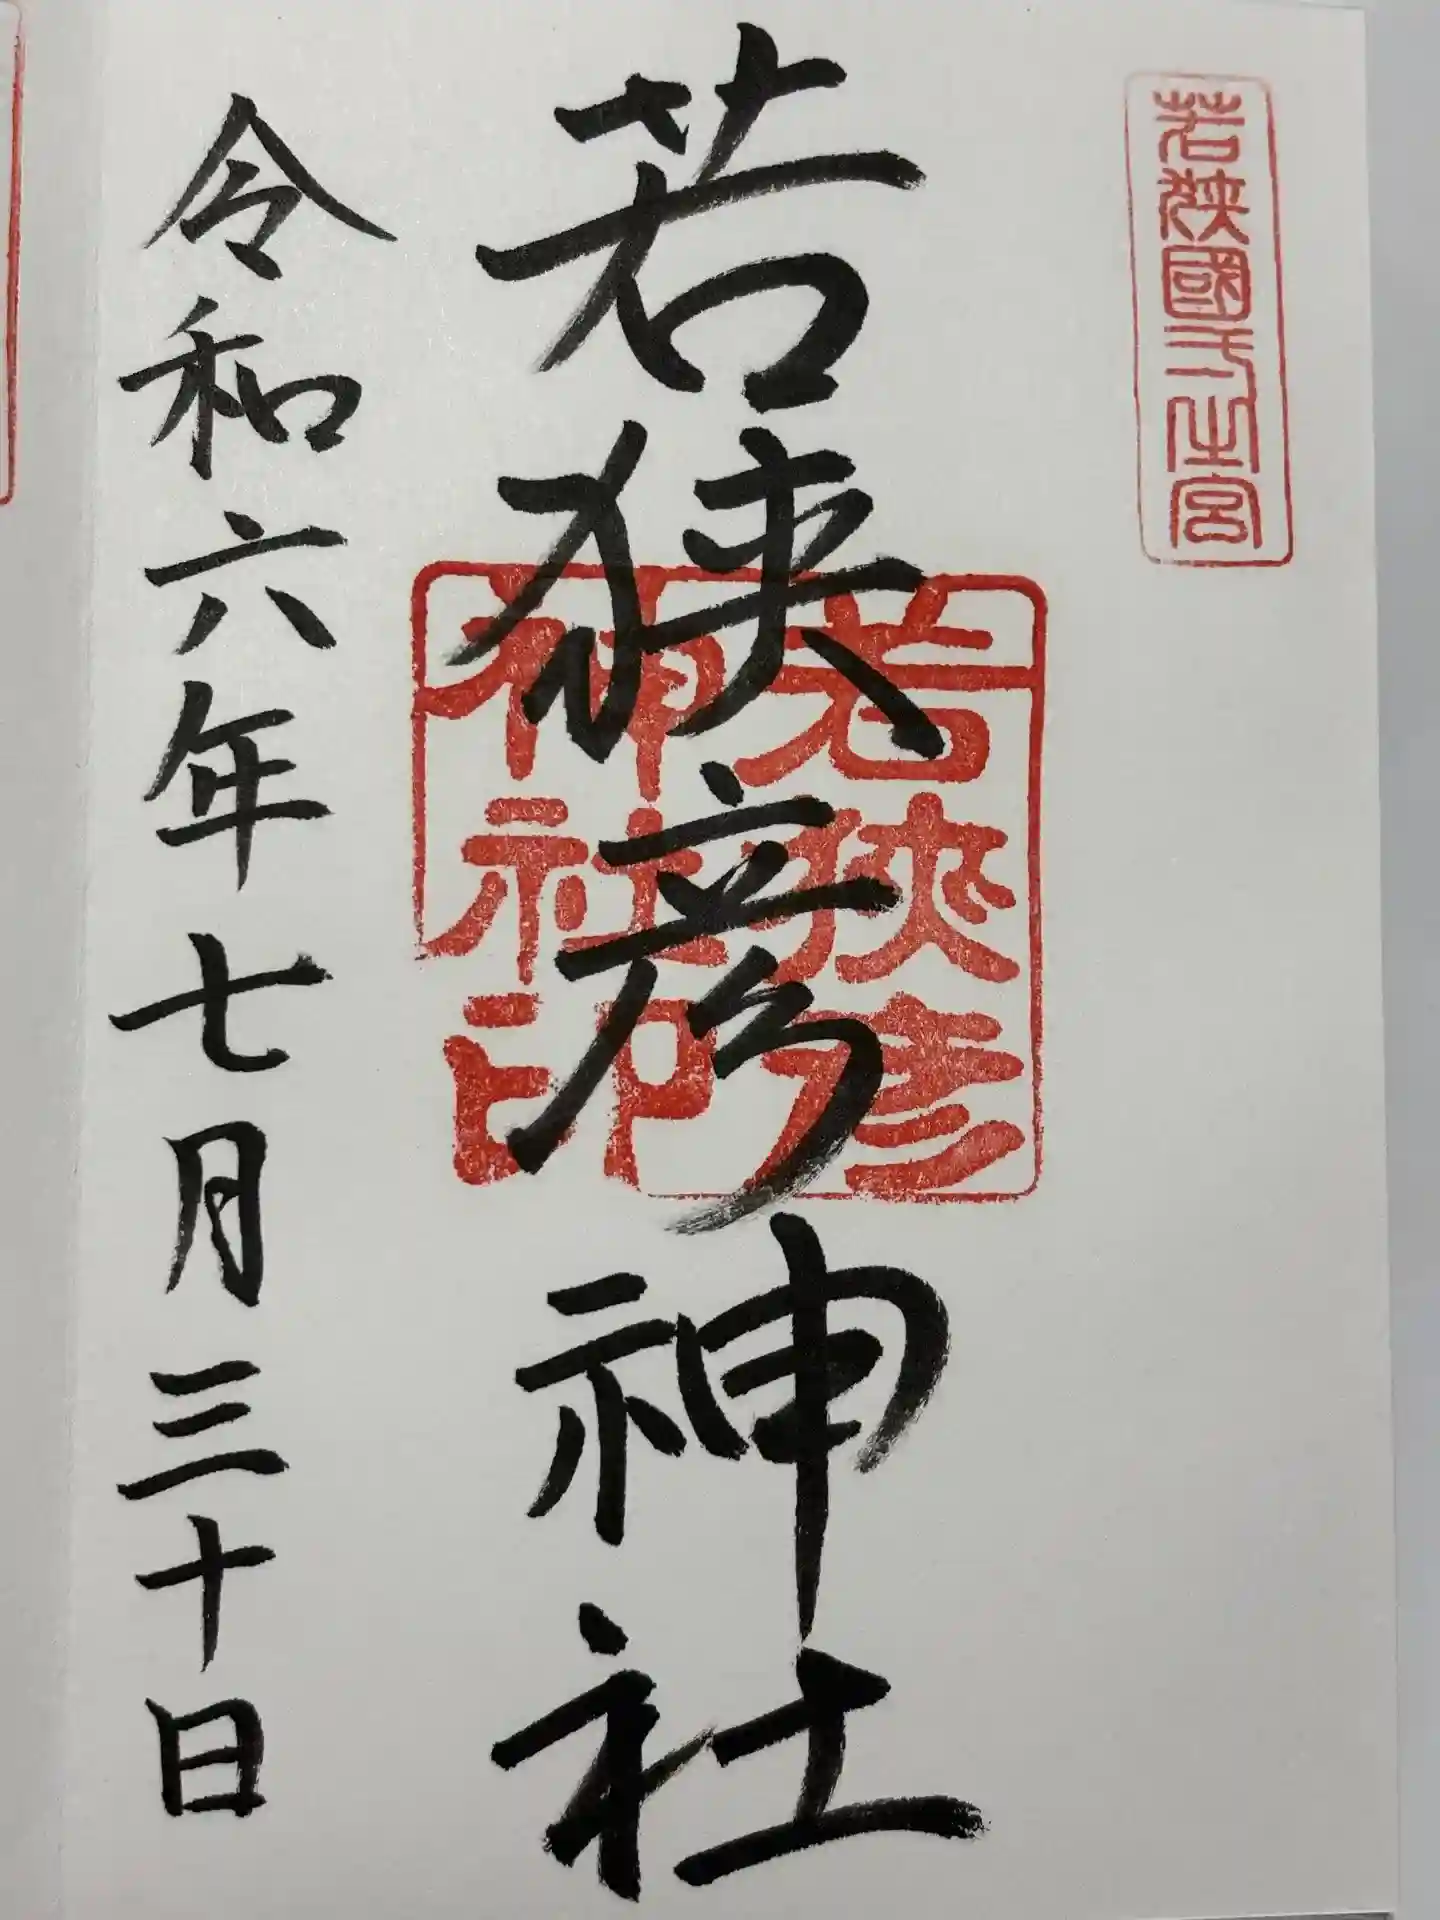 若狭國一之宮
若狭彦神社
若狭彦
神社印
令和六年七月三十日